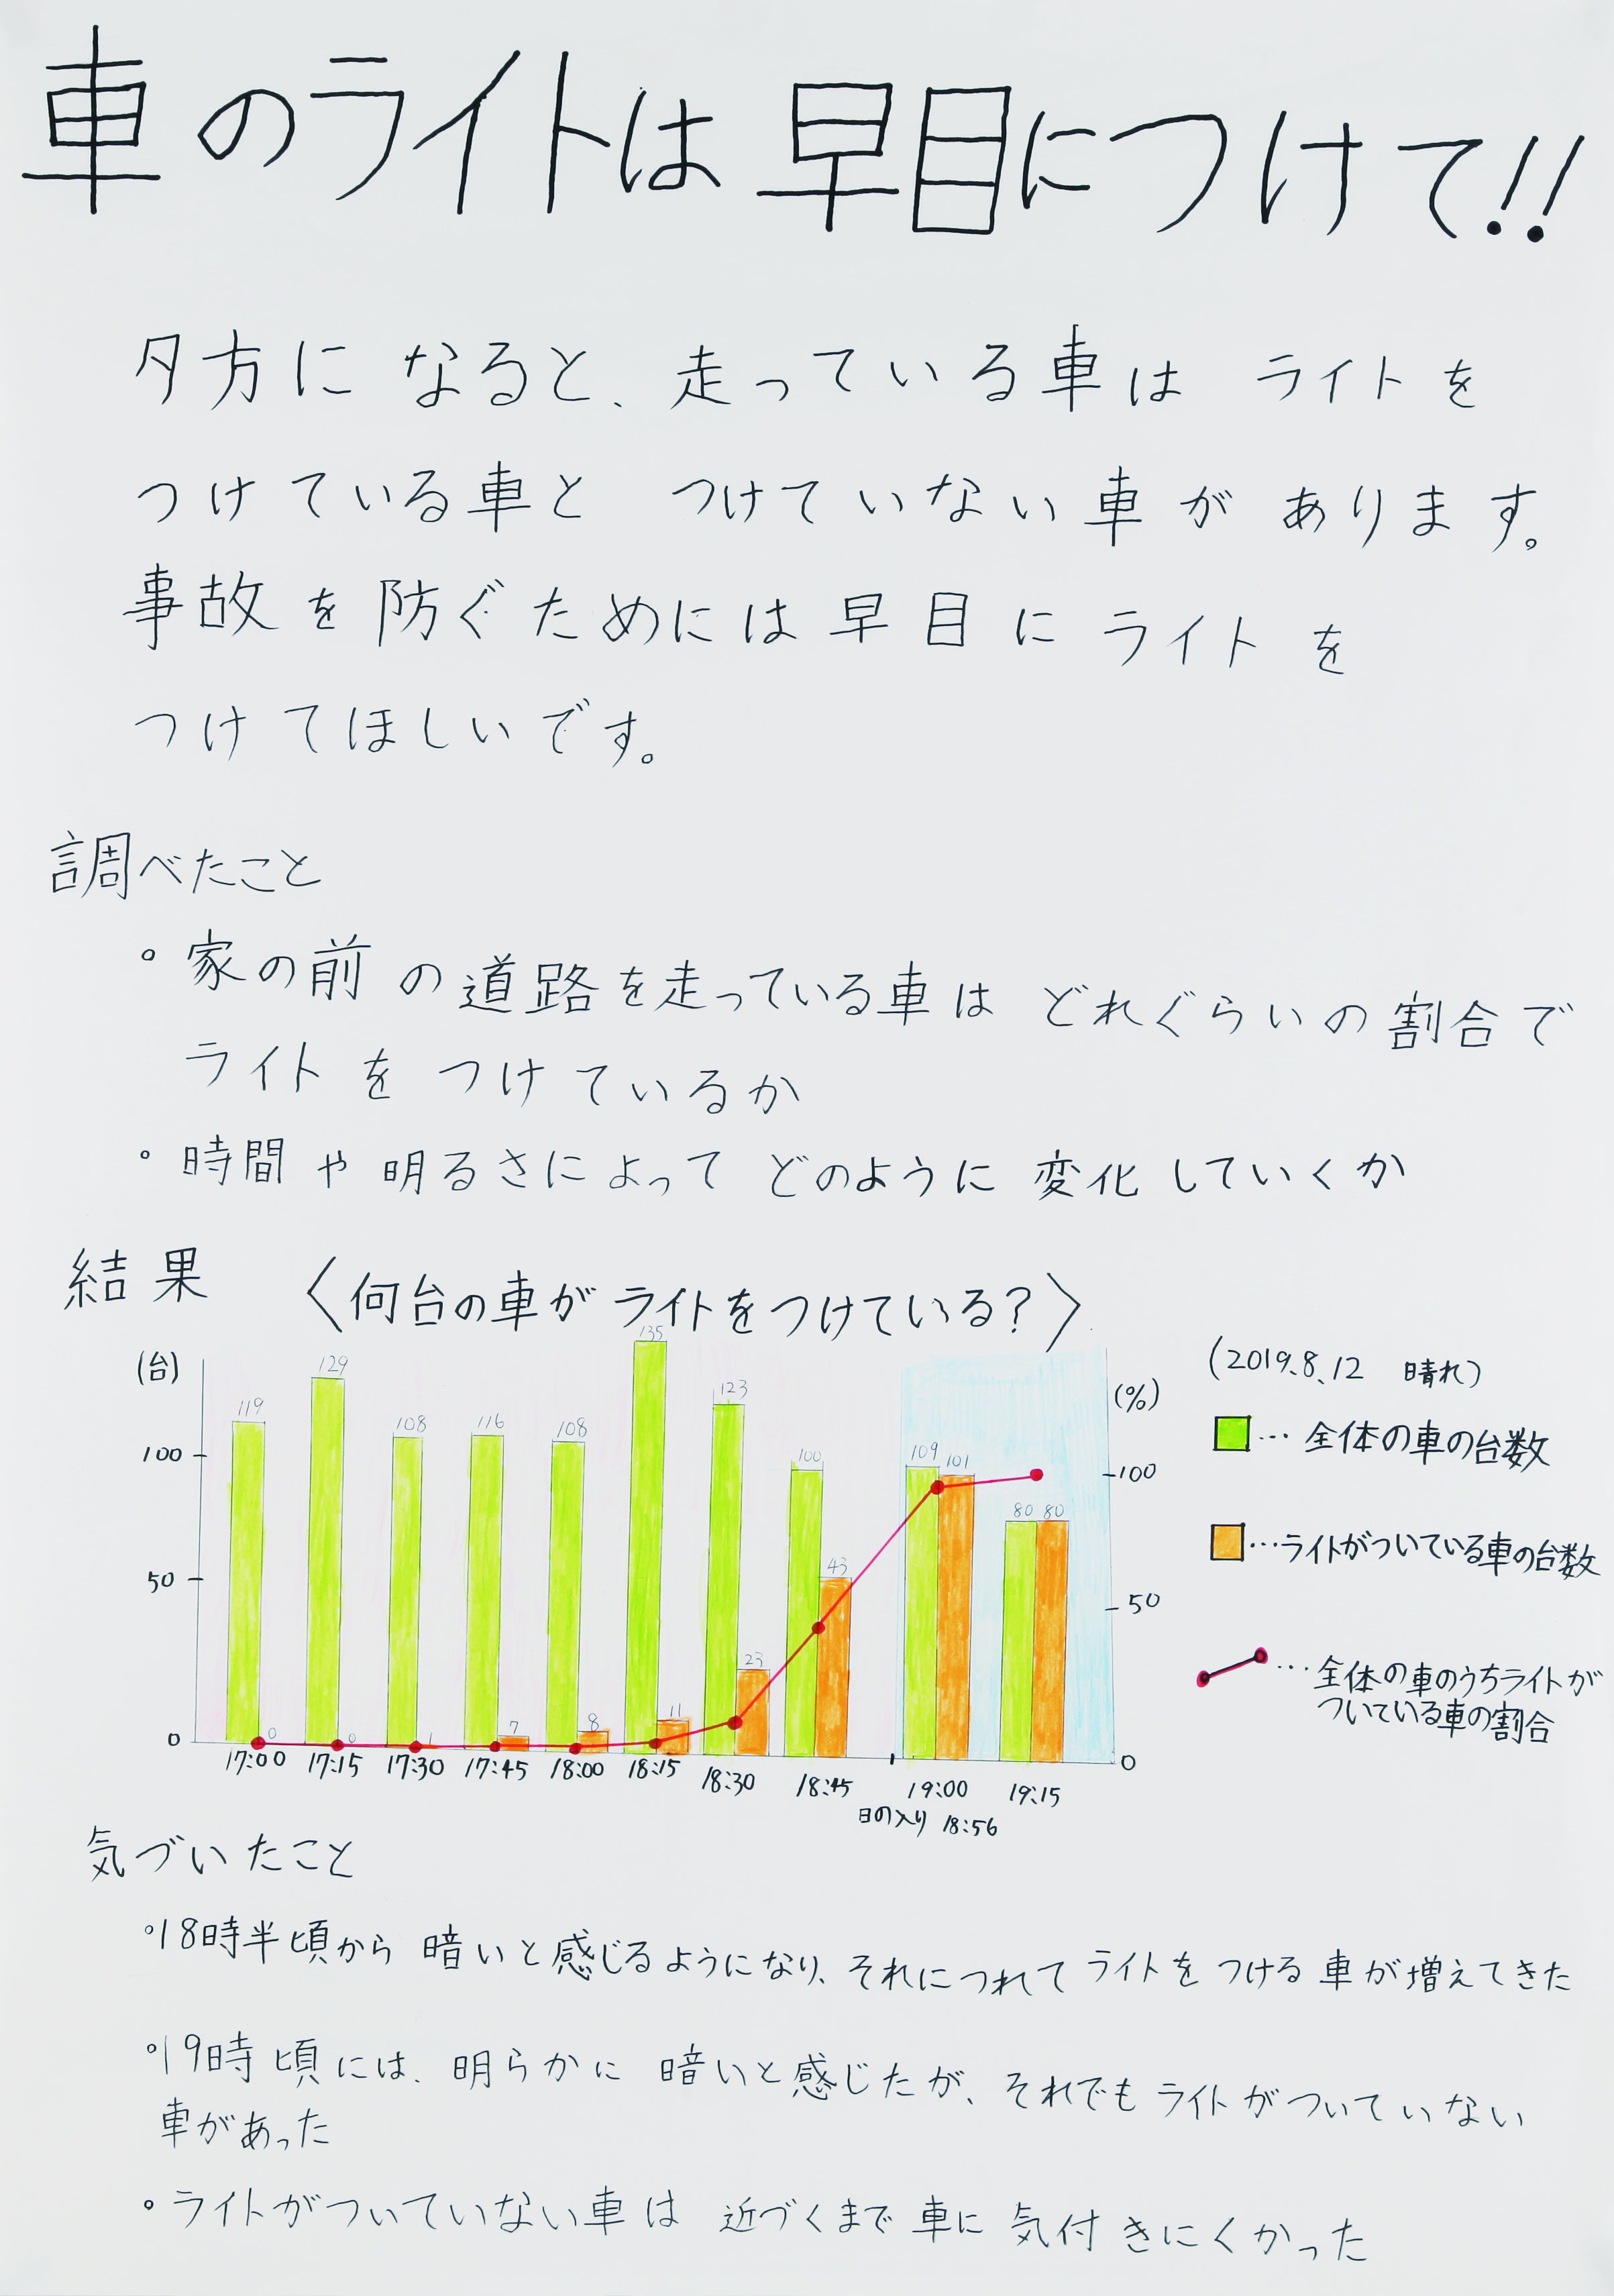 車のライトは早目につけて!!
夕方になると、走っている車はライトを
つけている車と つけていない車があります。
事故を防ぐためには早目にライトを
つけてほしいです。
調べたこと
・家の前の道路を走っている車はどれぐらいの割合で
ライトをつけているか
・時間や明るさによってどのように変化していくか
結果 〈何台の車がライトをつけている?〉
(2019.8.12 晴れ)
(台)
(%)
119 129 108 116 108 135 123 100 109 101 80 80
0 0 1 7 8 11 23 43
100
50
0
100
50
0
17:00 17:15 17:30 17:45 18:00 18:15 18:30 18:45 19:00 19:15
日の入り 18:56
… 全体の車の台数
…ライトがついている車の台数
… 全体の車のうちライトが
ついている車の割合
気づいたこと
・18時半頃から暗いと感じるようになり、それにつれてライトをつける車が増えてきた
・19時頃には、明らかに暗いと感じたが、それでもライトがついていない
車があった
・ライトがついていない車は近づくまで車に気付きにくかった